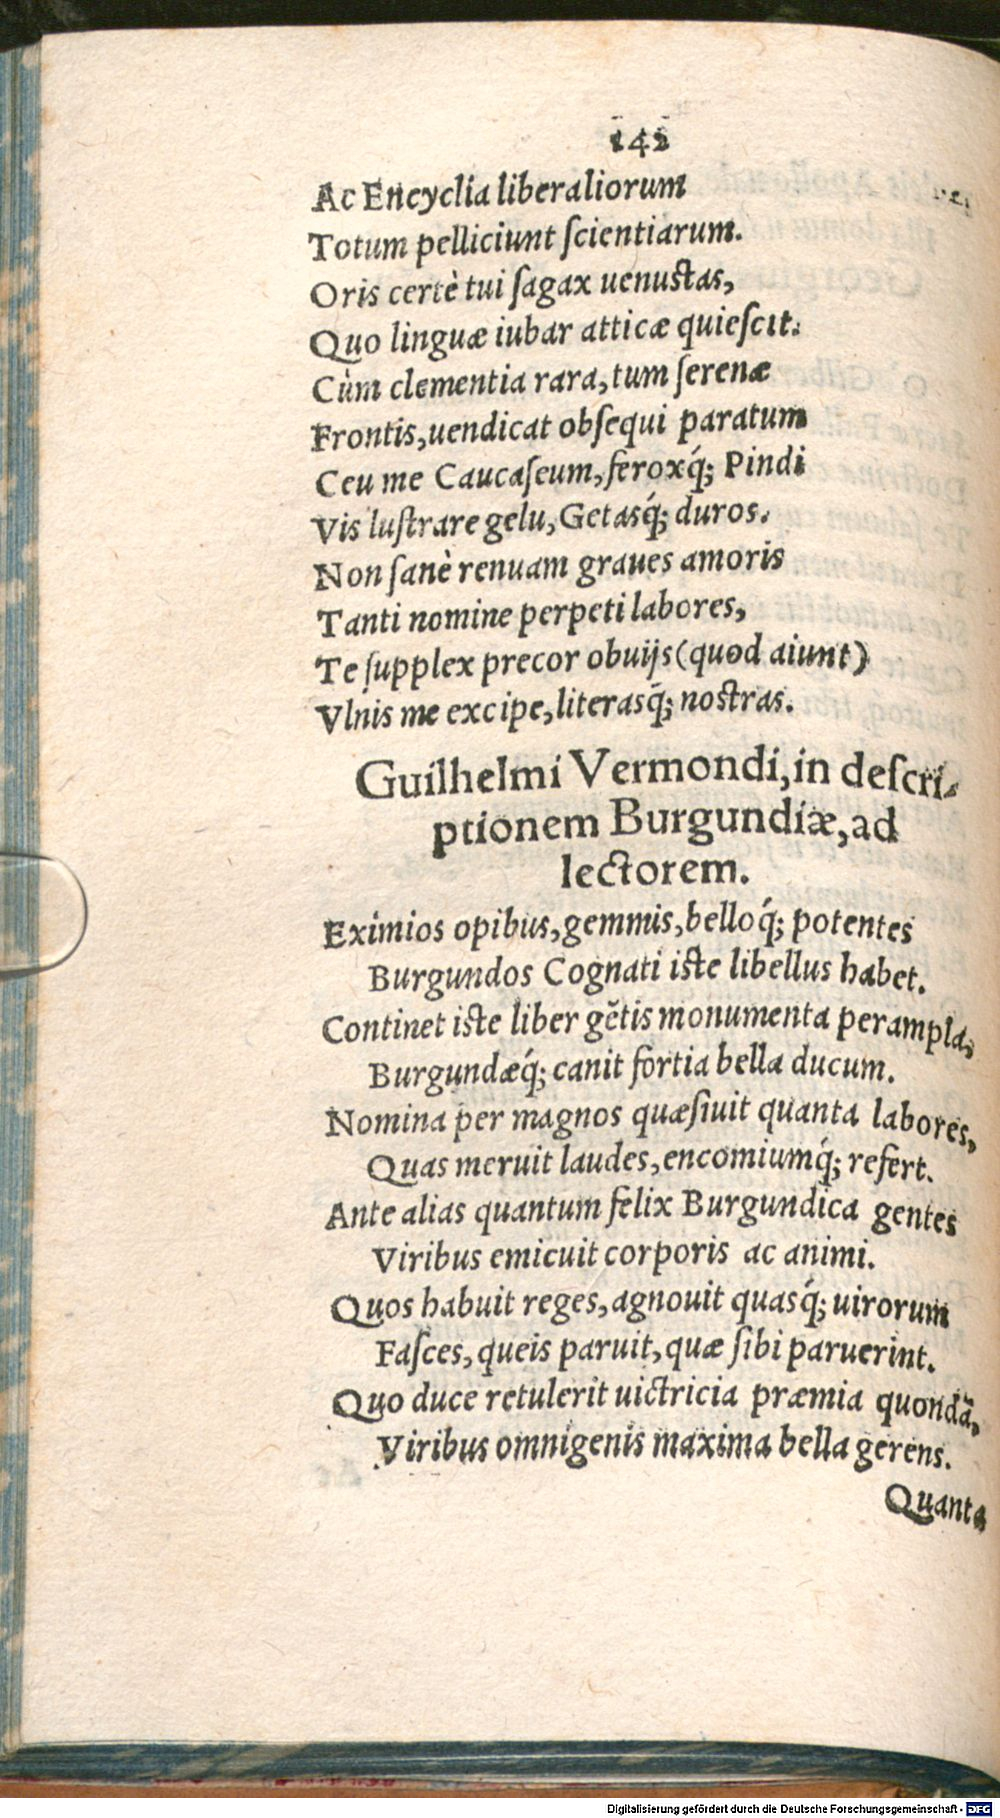 142
Ac Encyclia liberaliorum
Totum pelliciunt ſcientiarum.
Oris certè tui ſagax uenuſtas,
Quo linguæ iubar atticæ quieſcit.
Cùm clementia rara, tum ſerenæ
Frontis, uendicat obſequi paratum
Ceu me Caucaſeum, feroxq́; Pindi
Vis luſtrare gelu, Getasq́; duros.
Non ſanè renuam graues amoris
Tanti nomine perpeti labores,
Te ſupplex precor obuijs (quod aiunt)
Vlnis me excipe, literasq́; noſtras.
Guilhelmi Vermondi, in deſcri-
ptionem Burgundiæ, ad
lectorem.
Eximios opibus, gemmis, belloq́; potentes
Burgundos Cognati iſte libellus habet.
Continet iſte liber gẽtis monumenta perampla,
Burgundæq́; canit fortia bella ducum.
Nomina per magnos quæſiuit quanta labores,
Quas meruit laudes, encomiumq́; refert.
Ante alias quantum felix Burgundica gentes
Viribus emicuit corporis ac animi.
Quos habuit reges, agnouit quasq́; uirorum
Faſces, queis paruit, quæ ſibi paruerint.
Quo duce retulerit uictricia præmia quondã,
Viribus omnigenis maxima bella gerens.
Quanta
Digitalisierung gefördert durch die Deutsche Forschungsgemeinschaft - DFG